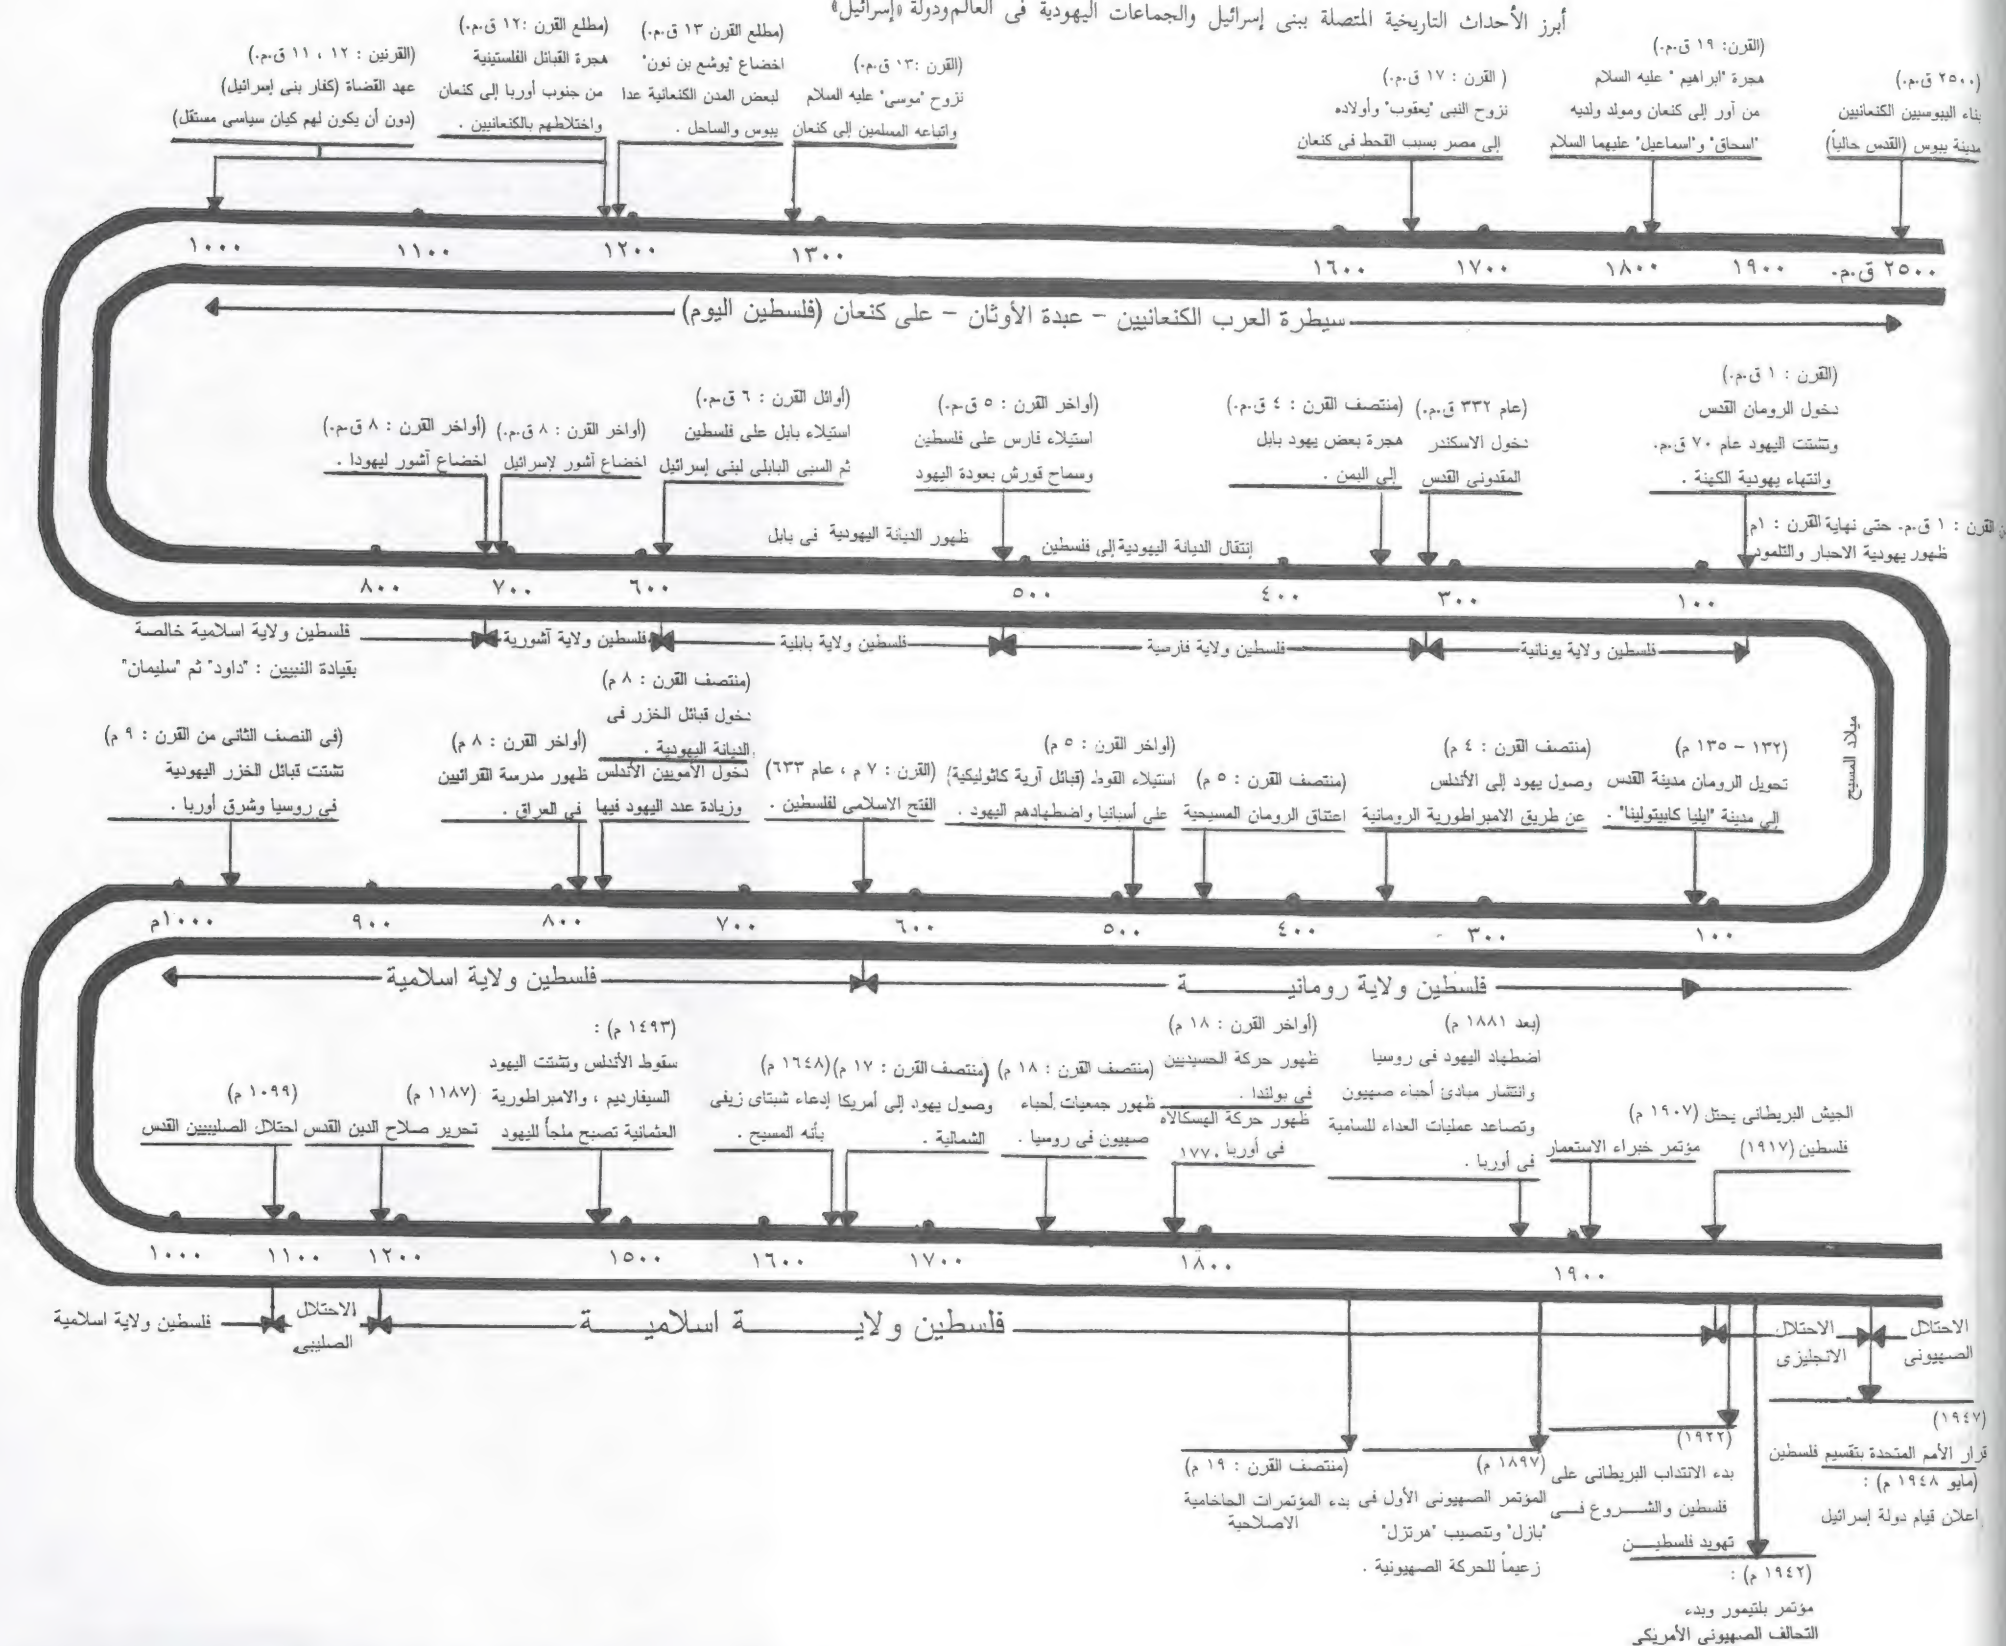 أبرز الأحداث التاريخية المتصلة ببنى إسرائيل والجماعات اليهودية فى العالم ودولة «إسرائيل»
(٢٥٠٠ ق.م.)
بناء اليبوسيين الكنعانيين
مدينة يبوس (القدس حالياً)
(القرن: ١٩ ق.م.)
هجرة "ابراهيم" عليه السلام
من أور إلى كنعان ومولد ولديه
"اسحاق" و"اسماعيل" عليهما السلام
(القرن : ١٧ ق.م.)
نزوح النبى "يعقوب" وأولاده
إلى مصر بسبب القحط فى كنعان
(القرن :١٣ ق.م.)
نزوح "موسى" عليه السلام
واتباعه المسلمين إلى كنعان
(مطلع القرن ١٣ ق.م.)
اخضاع "يوشع بن نون"
لبعض المدن الكنعانية عدا
يبوس والساحل .
(مطلع القرن :١٢ ق.م.)
هجرة القبائل الفلستينية
من جنوب أوربا إلى كنعان
واختلاطهم بالكنعانيين .
(القرنين : ١٢ ، ١١ ق.م.)
عهد القضاة (كفار بنى إسرائيل)
(دون أن يكون لهم كيان سياسى مستقل)
٢٥٠٠ ق.م. ١٩٠٠ ١٨٠٠ ١٧٠٠ ١٦٠٠ ١٣٠٠ ١٢٠٠ ١١٠٠ ١٠٠٠
سيطرة العرب الكنعانيين - عبدة الأوثان - على كنعان (فلسطين اليوم)
(القرن : ١ ق.م.)
دخول الرومان القدس
وتشتت اليهود عام ٧٠ ق.م.
وانتهاء يهودية الكهنة .
القرن : ١ ق.م. حتى نهاية القرن : ١م
ظهور يهودية الاحبار والتلمود
(عام ٣٣٢ ق.م.)
دخول الاسكندر
المقدونى القدس
(منتصف القرن : ٤ ق.م.)
هجرة بعض يهود بابل
إلى اليمن .
(أواخر القرن : ٥ ق.م.)
استيلاء فارس على فلسطين
وسماح قورش بعودة اليهود
(أوائل القرن : ٦ ق.م.)
استيلاء بابل على فلسطين
ثم السبى البابلى لبنى إسرائيل
(أواخر القرن : ٨ ق.م.)
اخضاع آشور لإسرائيل
(أواخر القرن : ٨ ق.م.)
اخضاع آشور ليهودا .
إنتقال الديانة اليهودية إلى فلسطين
ظهور الديانة اليهودية فى بابل
١٠٠ ٣٠٠ ٤٠٠ ٥٠٠ ٦٠٠ ٧٠٠ ٨٠٠
فلسطين ولاية يونانية
فلسطين ولاية فارصية
فلسطين ولاية بابلية
فلسطين ولاية آشورية
فلسطين ولاية اسلامية خالصة
بقيادة النبيين : "داود" ثم "سليمان"
ميلاد المسيح
(١٣٢ - ١٣٥ م)
تحويل الرومان مدينة القدس
إلى مدينة "ايليا كابيتولينا" .
(منتصف القرن : ٤ م)
وصول يهود إلى الأندلس
عن طريق الامبراطورية الرومانية
(منتصف القرن : ٥ م)
اعتناق الرومان المسيحية
(اواخر القرن : ٥ م)
استيلاء القوط (قبائل آرية كاثوليكية)
على أسبانيا واضطهادهم اليهود .
(القرن : ٧ م ، عام ٦٣٣)
الفتح الاسلامى لفلسطين .
(منتصف القرن : ٨ م)
دخول قبائل الخزر فى
الديانة اليهودية .
دخول الأمويين الأندلس
وزيادة عدد اليهود فيها
(أواخر القرن : ٨ م)
ظهور مدرسة القرائيين
فى العراق .
(فى النصف الثانى من القرن : ٩ م)
تشتت قبائل الخزر اليهودية
فى روسيا وشرق أوربا .
١٠٠ ٣٠٠ ٤٠٠ ٥٠٠ ٦٠٠ ٧٠٠ ٨٠٠ ٩٠٠ ١٠٠٠م
فلسطين ولاية رومانيـــــــة
فلسطين ولاية اسلامية
الجيش البريطانى يحتل
فلسطين (١٩١٧)
(١٩٠٧ م)
مؤتمر خبراء الاستعمار
(بعد ١٨٨١ م)
اضطهاد اليهود فى روسيا
وانتشار مبادئ أحباء صهيون
وتصاعد عمليات العداء للسامية
فى أوربا .
(أواخر القرن : ١٨ م)
ظهور حركة الحسيديين
فى بولندا .
ظهور حركة الهسكالاه
فى أوربا ١٧٧٠
(منتصف القرن : ١٨ م)
ظهور جمعيات أحباء
صهيون فى روسيا .
(منتصف القرن : ١٧ م)
وصول يهود إلى أمريكا
الشمالية .
(١٦٤٨ م)
إدعاء شبتاى زيفى
بأنه المسيح .
(١٤٩٣ م) :
سقوط الأندلس وتشتت اليهود
السيفارديم ، والامبراطورية
العثمانية تصبح ملجأ لليهود
(١١٨٧ م)
تحرير صلاح الدين القدس
(١٠٩٩ م)
احتلال الصليبيين القدس
١٠٠٠ ١١٠٠ ١٢٠٠ ١٥٠٠ ١٦٠٠ ١٧٠٠ ١٨٠٠ ١٩٠٠
فلسطين ولاية اسلامية
الاحتلال
الصليبى
فلسطين ولايـــــــة اسلاميـــــة
الاحتلال
الانجليزى
الاحتلال
الصهيونى
(١٩٤٧)
قرار الأمم المتحدة بتقسيم فلسطين
(مايو ١٩٤٨ م) :
اعلان قيام دولة إسرائيل
(١٩٢٢)
بدء الانتداب البريطانى على
فلسطين والشـــروع فـــى
تهويد فلسطيـــن
(١٨٩٧ م)
المؤتمر الصهيونى الأول فى
"بازل" وتنصيب "هرتزل"
زعيماً للحركة الصهيونية .
(منتصف القرن : ١٩ م)
بدء المؤتمرات الحاخامية
الاصلاحية
(١٩٤٢ م) :
مؤتمر بلتيمور وبدء
التحالف الصهيونى الأمريكى